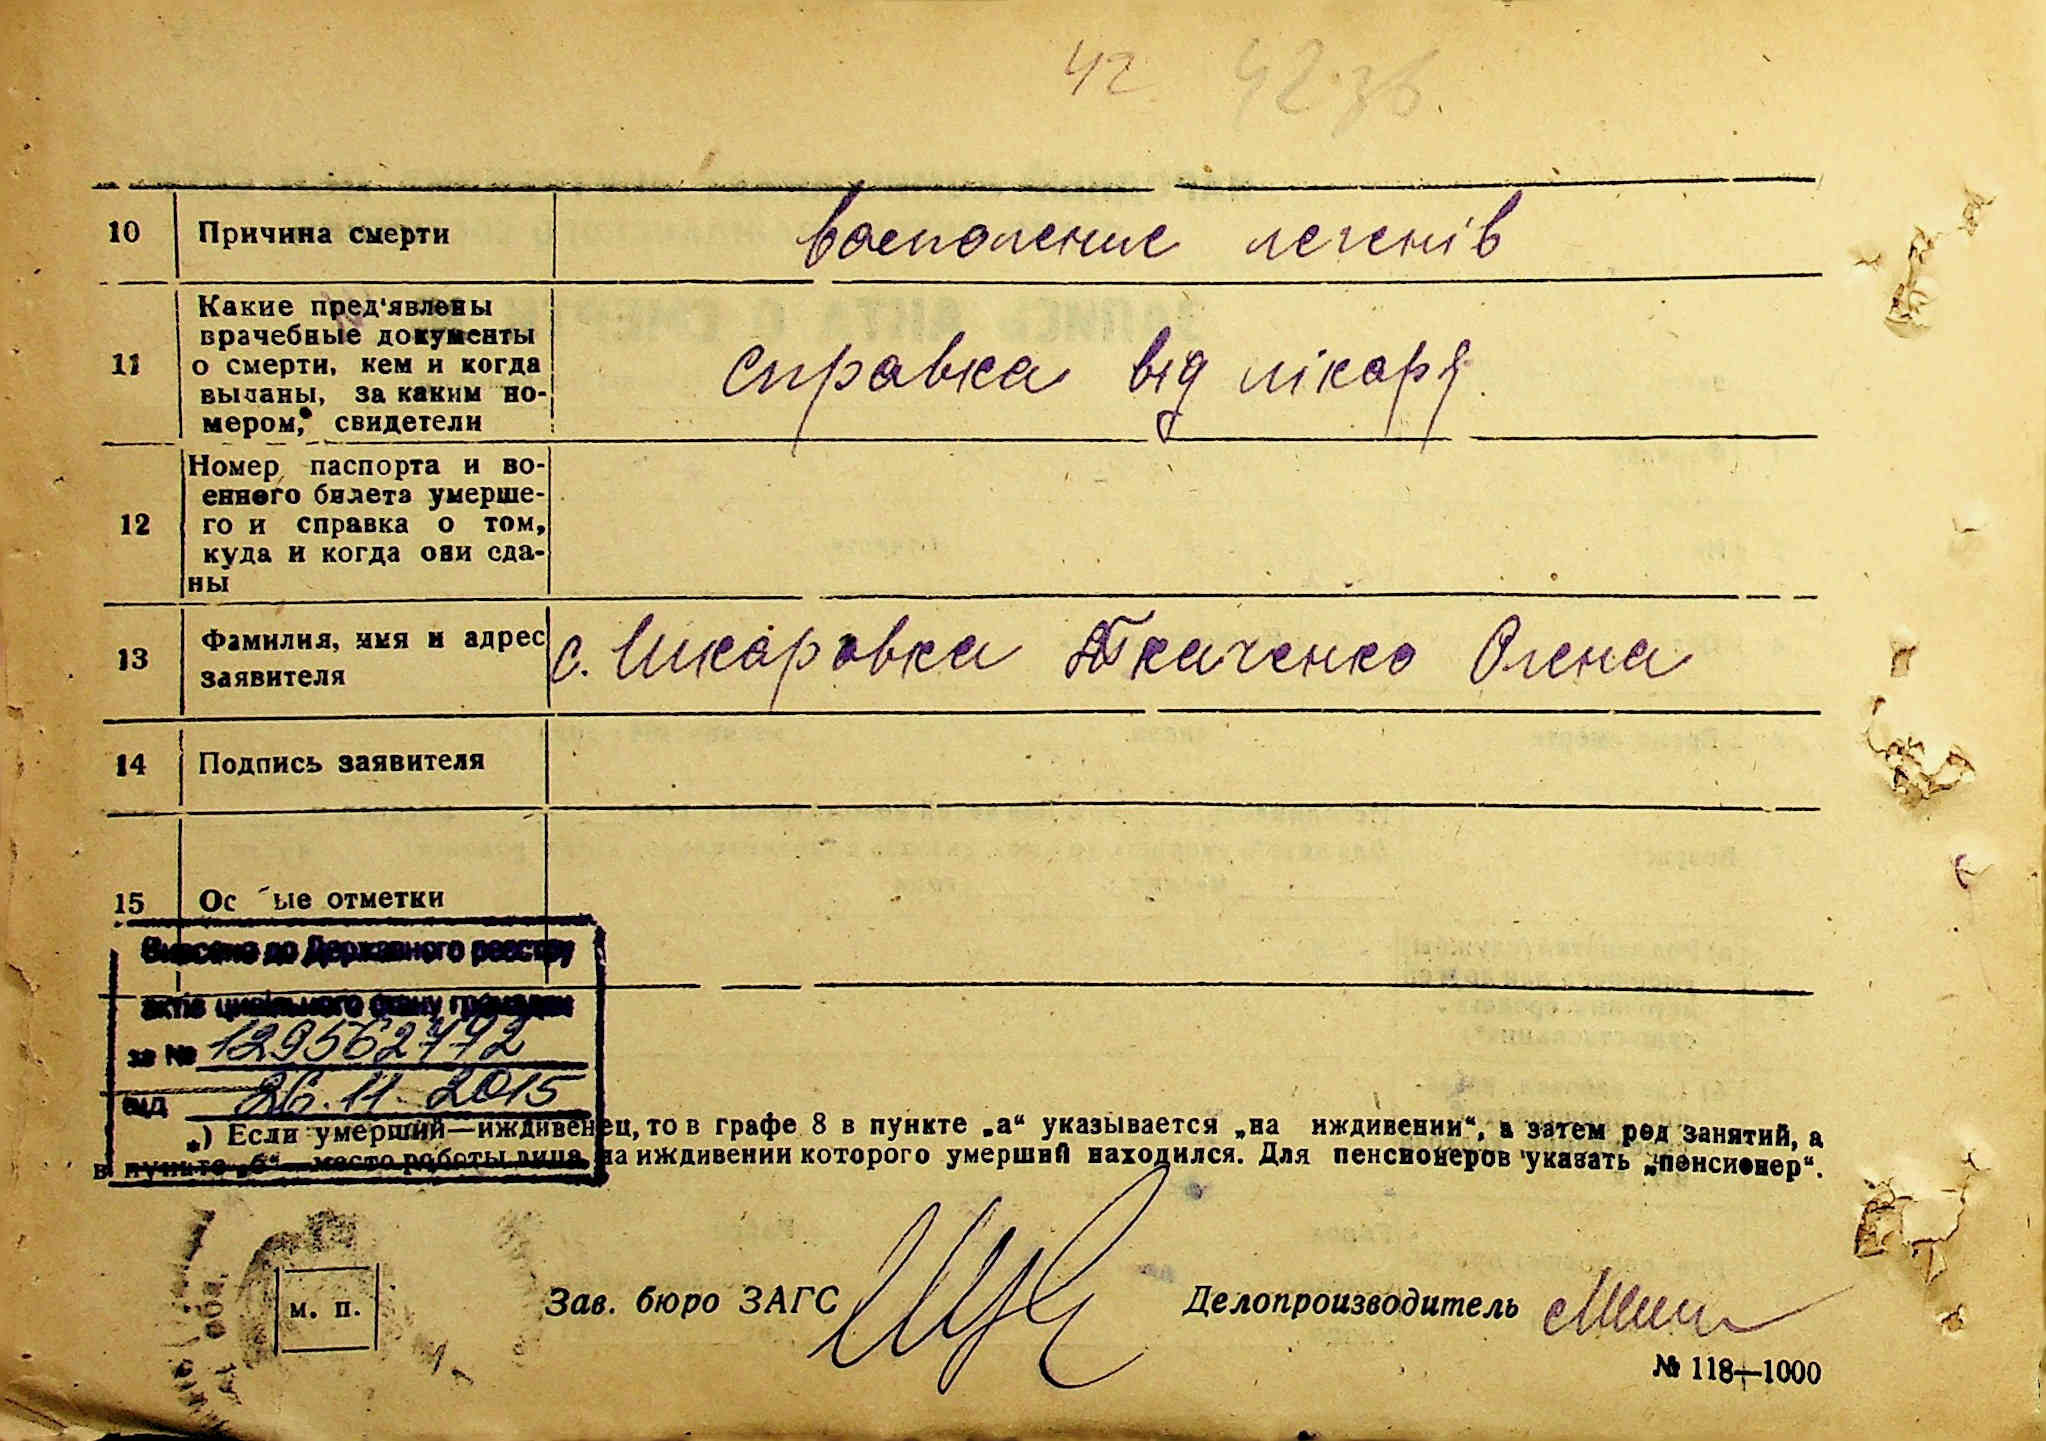 42 42 зв.
10 Причина смерти восполение легенів
11 Какие пред'явлены
врачебные документы
о смерти, кем и когда
выданы, за каким но-
мером, свидетели
справка від лікаря.
12 Номер паспорта и во-
енного билета умерше-
го и справка о том,
куда и когда они сда-
ны
13 Фамилия, имя и адрес
заявителя
с. Шкаровка Ткаченко Олена
14 Подпись заявителя
15 Ос ые отметки
Внесено до Державного реєстру
актів цивільного стану громадян
за № 129562772
від 26.11.2015
*) Если умерший—иждивенец, то в графе 8 в пункте „а“ указывается „на иждивении“, а затем род занятий, а
в пункте „б“—место работы лица, на иждивении которого умерший находился. Для пенсионеров указать „пенсионер“.
м. п.
Зав. бюро ЗАГС
Делопроизводитель
№ 118—1000